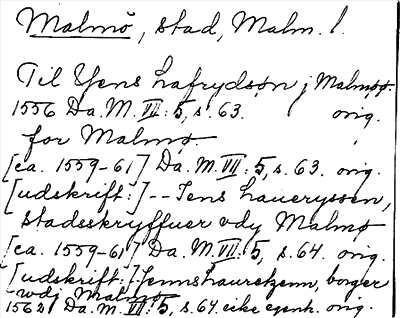 Malmö, stad, Malm. l.
Til Yens Lafrydsøn j Malmøø.
1556 Da. M. VII: 5, s. 63. orig.
for Malmø.
[ca. 1559-61] Da. M. VII: 5, s. 63. orig.
[udskrift:] -- Iens Laueryssen,
stadsskryffuer vdy Malmø
[ca. 1559-61] Da. M. VII: 5, s. 64. orig.
[udskrift:] Jenns Lauretzenn, borger
wdj Malmø
1562 Da. M. VII: 5, s. 64 icke egenh. orig.